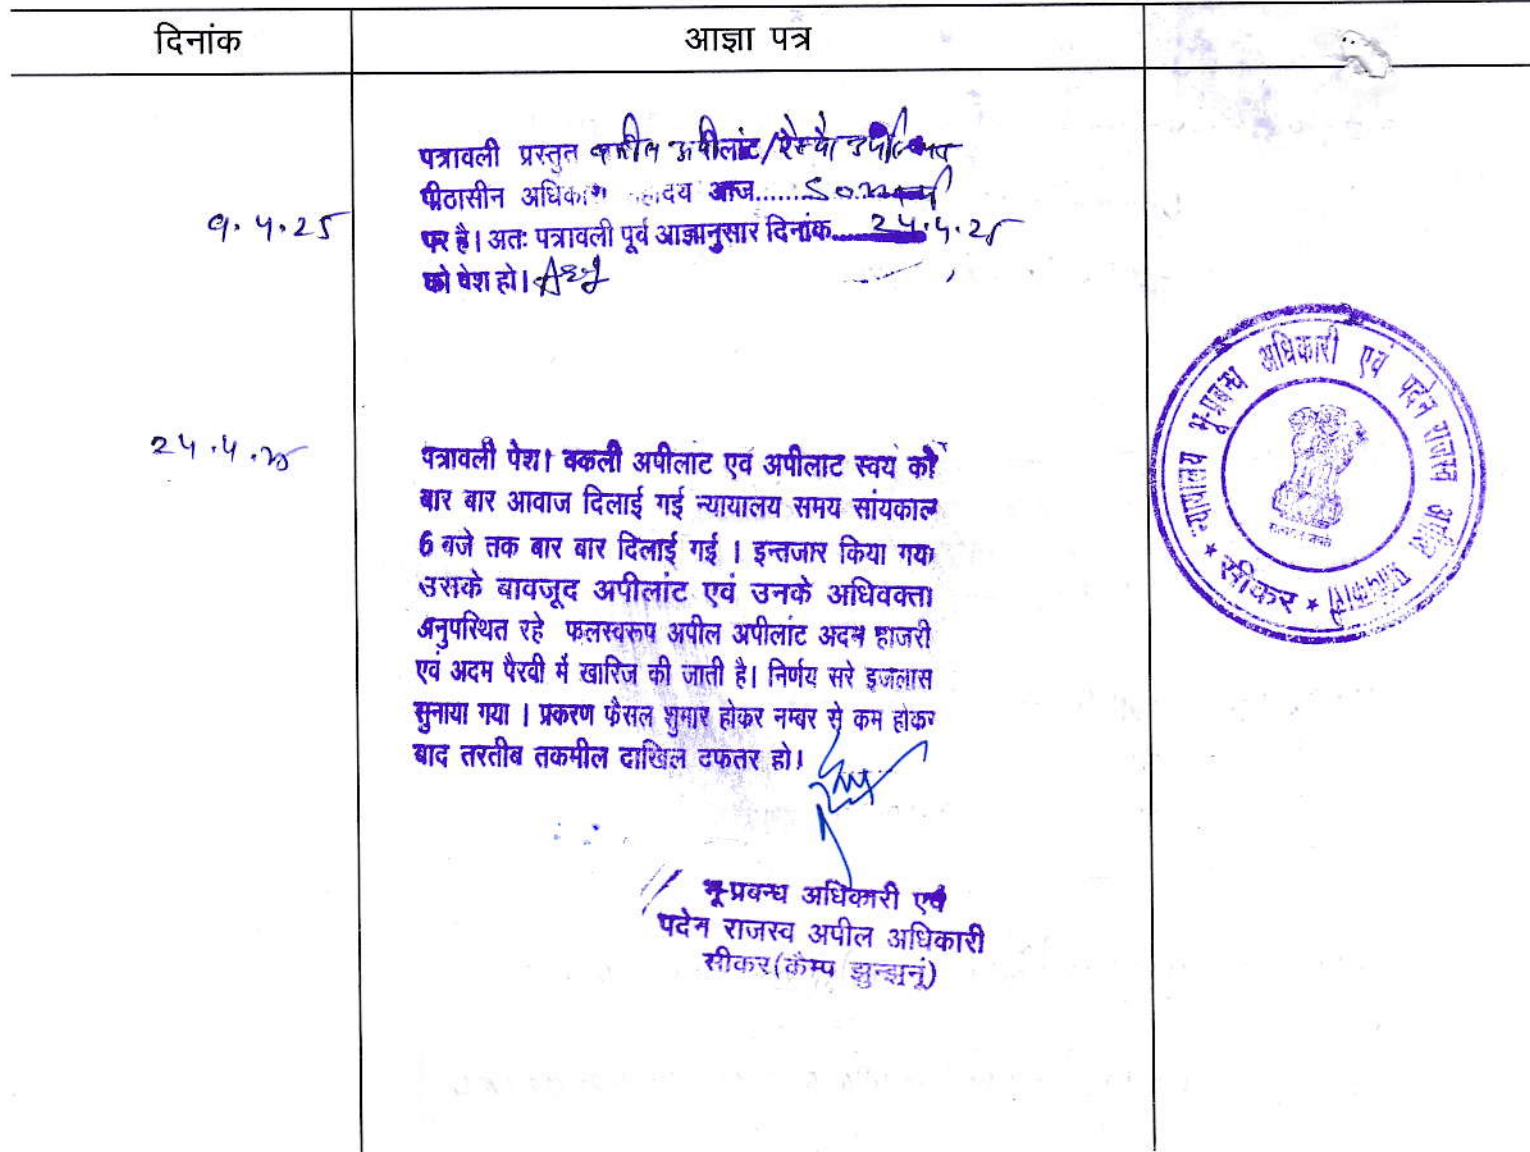 दिनांक
आज्ञा पत्र
पत्रावली प्रस्तुत वकील अपीलांट/रैस्पो उपस्थित
पीठासीन अधिकारी महोदय आज.......
9.4.25
पर है। अतः पत्रावली पूर्व आज्ञानुसार दिनांक.....24.4.25
को पेश हो।
24.4.25
पत्रावली पेश। वकली अपीलाट एव अपीलाट स्वय को
बार बार आवाज दिलाई गई न्यायालय समय सांयकाल
6 बजे तक बार बार दिलाई गई । इन्तजार किया गया
उसके बावजूद अपीलांट एवं उनके अधिवक्ता
अनुपस्थित रहे फलस्वरूप अपील अपीलांट अदम हाजरी
एवं अदम पैरवी में खारिज की जाती है। निर्णय सरे इजलास
सुनाया गया । प्रकरण फैसल शुमार होकर नम्बर से कम होकर
बाद तरतीब तकमील दाखिल दफतर हो।
भू-प्रबन्ध अधिकारी एवं
पदेन राजस्व अपील अधिकारी
सीकर(कैम्प झुन्झुनूं)
न्यायालय भू-प्रबन्ध अधिकारी एवं पदेन राजस्व अपील अधिकारी
* सीकर *